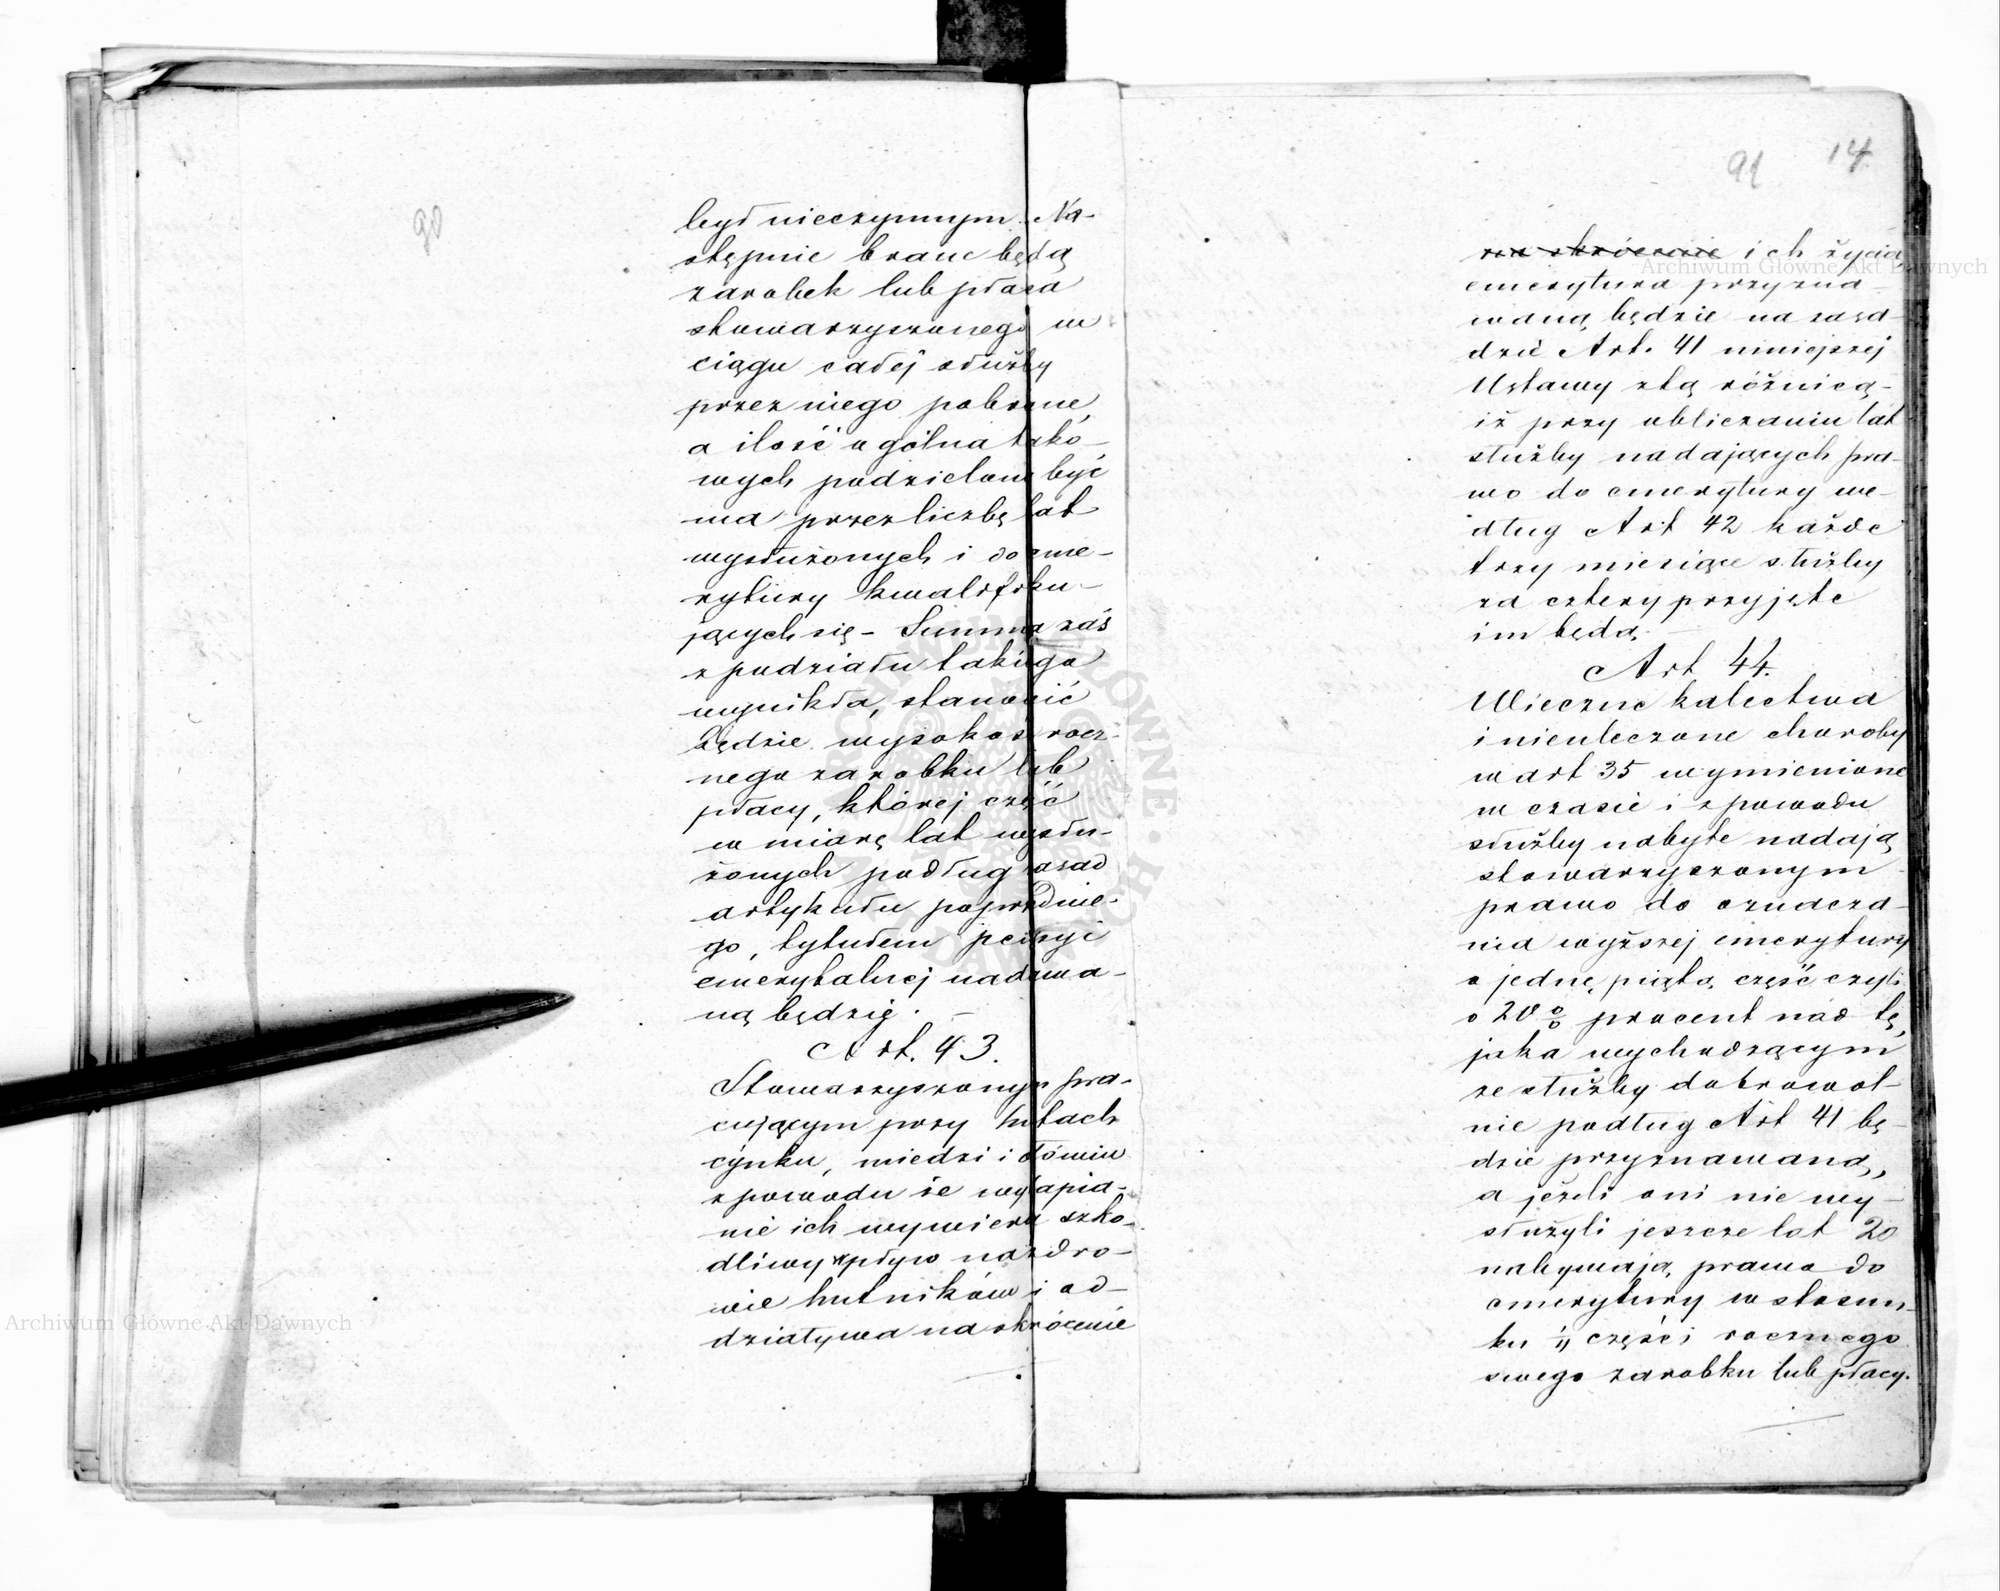 90
był nieczynnym. Na-
stępnie brane będą
zarobek lub płaca
stowarzyszonego w
ciągu całej służby
przez niego pobrane,
a ilość ogólna takó-
wych podzieloną być
ma przez liczbę lat
wysłużonych i do eme-
rytury kwalifiku-
jących się – Summa zaś
z podziału takiego
wynikła, stanowić
będzie wysokoś rocz-
nego zarobku lub
płacy, której część
w miarę lat wysłu-
żonych podług zasad
artykułu poprzednie-
go, tytułem pensyi
emerytalnej nadawa-
ną będzię. –
Art. 43.
Stowarzyszonym pra-
cującym przy hutach
cynku, miedzi i ołowiu
z powodu że wytapia-
nie ich wywiera szko-
dliwy wpływ na zdro-
wie hutników i od-
działywa na skrócenie
91 14
na skrócenie ich życia
emerytura przyzna-
waną będzie na zasa-
dzie Art. 41 niniejszej
Ustawy z tą różnicą-
iż przy obliczaniu lat
służby nadających pra-
wo do emerytury we-
dług Art 42 każde
trzy miesiące służby
za cztery przyjęte
im będą. –
Art 44.
Wieczne kalectwa
i nieuleczone choroby
w art 35 wymienione
w czasie i z powodu
służby nabyte nadają
stowarzyszonym
prawo do oznacza-
nia wyższej emerytury
o jednę piątą część czyli
o 20 % procent nad tę,
jaka wychodzącym
ze służby dobrowol-
nie podług Art 41 bę-
dzie przyznawaną,
a jeżeli oni nie wy-
służyli jeszcze lat 20
nabywają prawo do
emerytury w stosun-
ku części rocznego
swego zarobku lub płacy.
Archiwum Główne Akt Dawnych
Archiwum Główne Akt Dawnych